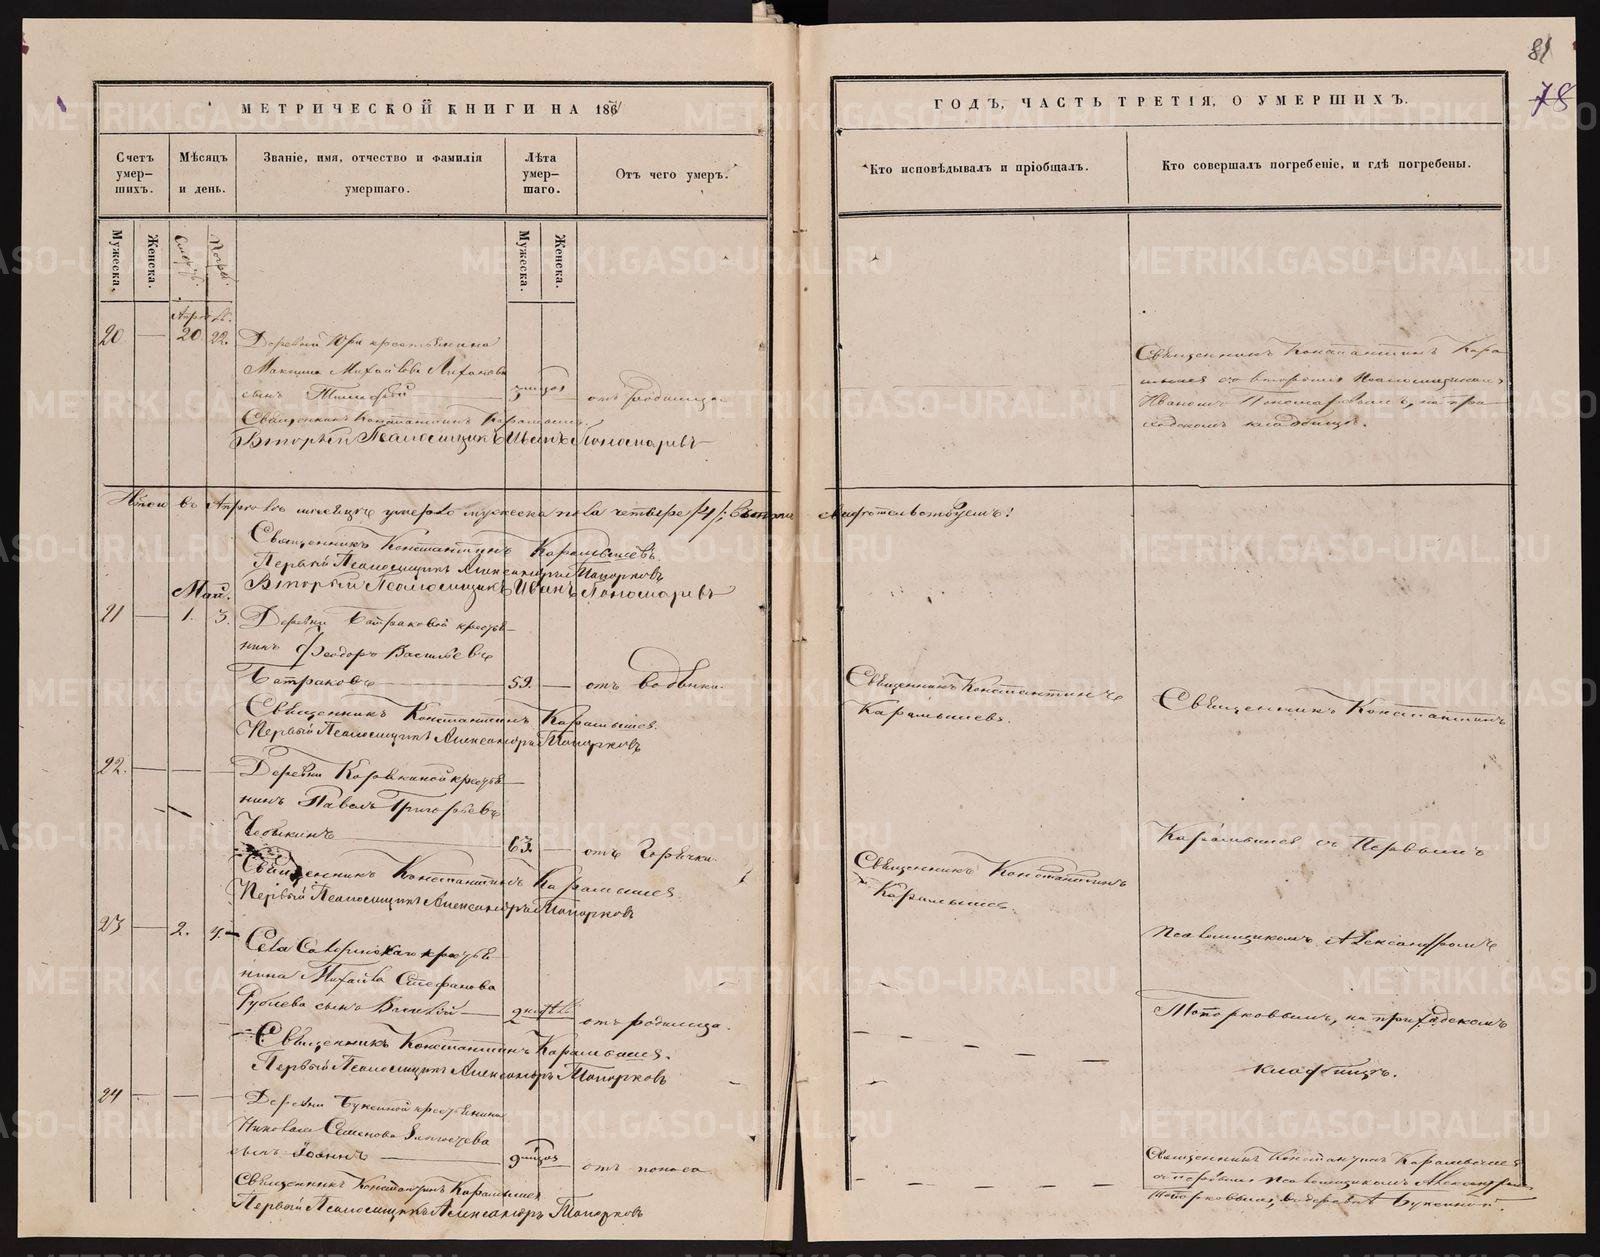 81
78
МЕТРИЧЕСКОЙ КНИГИ НА 186
ГОДЪ, ЧАСТЬ ТРЕТІЯ, О УМЕРШИХЪ.
Счетъ умер-шихъ.
Мѣсяцъ и день.
Званіе, имя, отчество и фамилія умершаго.
Лѣта умер-шаго.
Отъ чего умеръ.
Кто исповѣдывалъ и пріобщалъ.
Кто совершалъ погребеніе, и гдѣ погребены.
Мужеска.
Женска.
Мужеска.
Женска.
20 — 20. 22.
крестьянина
Максима Михайлова
сынъ Тимофей
отъ родимца
Священникъ Константинъ Карамышев.
Второй Псаломщикъ Иванъ Пономаревъ
Священникъ Константинъ Кара
мышев со вторымъ Псаломщикомъ
Иваномъ Пономаревымъ, на при
ходскомъ кладбищѣ.
въ Апрѣлѣ мѣсяцѣ умерло мужеска пола четыре /4/;
свидѣтельствуемъ:
Священникъ Константинъ Карамышевъ
Первый Псаломщикъ Александръ Топорковъ
Второй Псаломщикъ Иванъ Пономаревъ
Май.
21 — 1. 3.
Деревни Батраковой крестья-
нинъ Феодоръ Васильевъ
Батраковъ — 59. — отъ водянки.
Священникъ Константинъ Карамышев.
Первый Псаломщикъ Александръ Топорковъ
Священникъ Константинъ
Карамышевъ.
Священникъ Константинъ
22. — — —
Деревни Коровкиной крестья-
нинъ Павелъ Григорьевъ
63. — отъ горячки.
Священникъ Константинъ Карамышев
Первый Псаломщикъ Александръ Топорковъ
Священникъ Константинъ
Карамышев.
Карамышев съ Первымъ
23 — 2. 4.
Села крестья-
нина Михаила Стефанова
Рублева сынъ Василій — отъ родимца.
Священникъ Константинъ Карамышев.
Первый Псаломщикъ Александръ Топорковъ
Псаломщикомъ Александромъ
Топорковымъ, на приходскомъ
кладбищѣ.
24 — — —
Деревни Букиной крестьянина
Николая Семенова
сынъ Іоаннъ — отъ поноса
Священникъ Константинъ Карамышев
Первый Псаломщикъ Александръ Топорковъ
Священникъ Константинъ Карамышев
съ первымъ псаломщикомъ Александром
Топорковымъ, въ деревнѣ Букиной.
METRIKI.GASO-URAL.RU